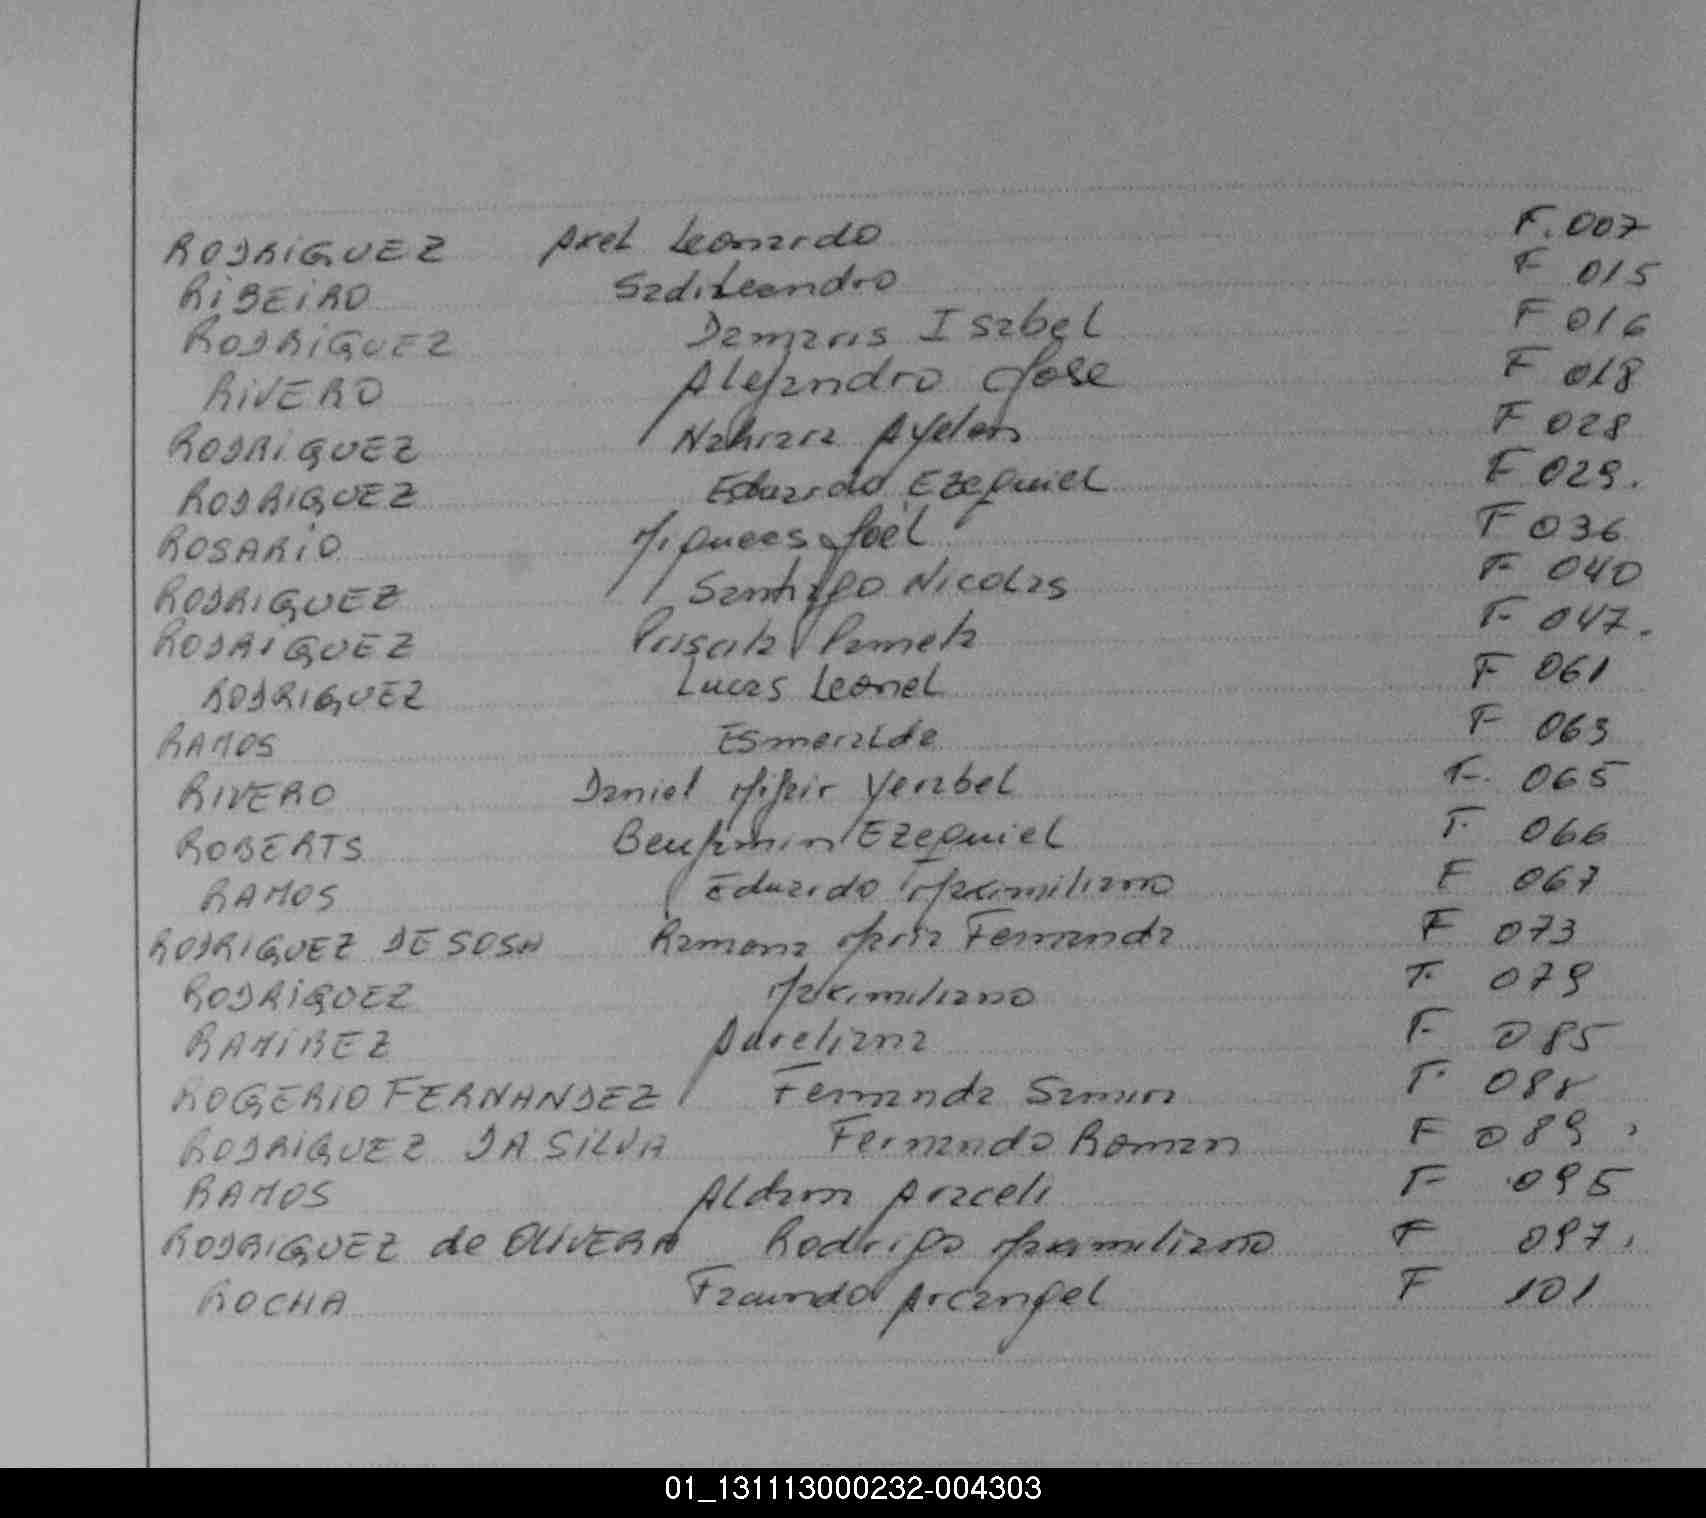 RODRIGUEZ Axel Leonardo F. 007
RIBEIRO Sadi Leandro F 015
RODRIGUEZ Damaris Isabel F 016
RIVERO Alejandro Jose F 018
RODRIGUEZ Nahiara Ayelen F 028
RODRIGUEZ Eduardo Ezequiel F 029.
ROSARIO Miqueas Joel F 036
RODRIGUEZ Santiago Nicolas F 040
RODRIGUEZ Priscila Pamela F 047.
RODRIGUEZ Lucas Leonel F 061
RAMOS Esmeralda F 063
RIVERO Daniel Yerabel F. 065
ROBERTS Benjamin Ezequiel F. 066
RAMOS Eduardo Maximiliano F 067
RODRIGUEZ DE SOSA Ramona Maria Fernanda F 073
RODRIGUEZ Maximiliano F. 079
RAMIREZ Aureliana F 085
ROGERIO FERNANDEZ Fernanda F. 088
RODRIGUEZ DA SILVA Fernando Roman F 089
RAMOS Aldana Araceli F 095
RODRIGUEZ de OLIVERA Rodrigo Maximiliano F 097.
ROCHA Facundo Arcangel F 101
01_131113000232-004303